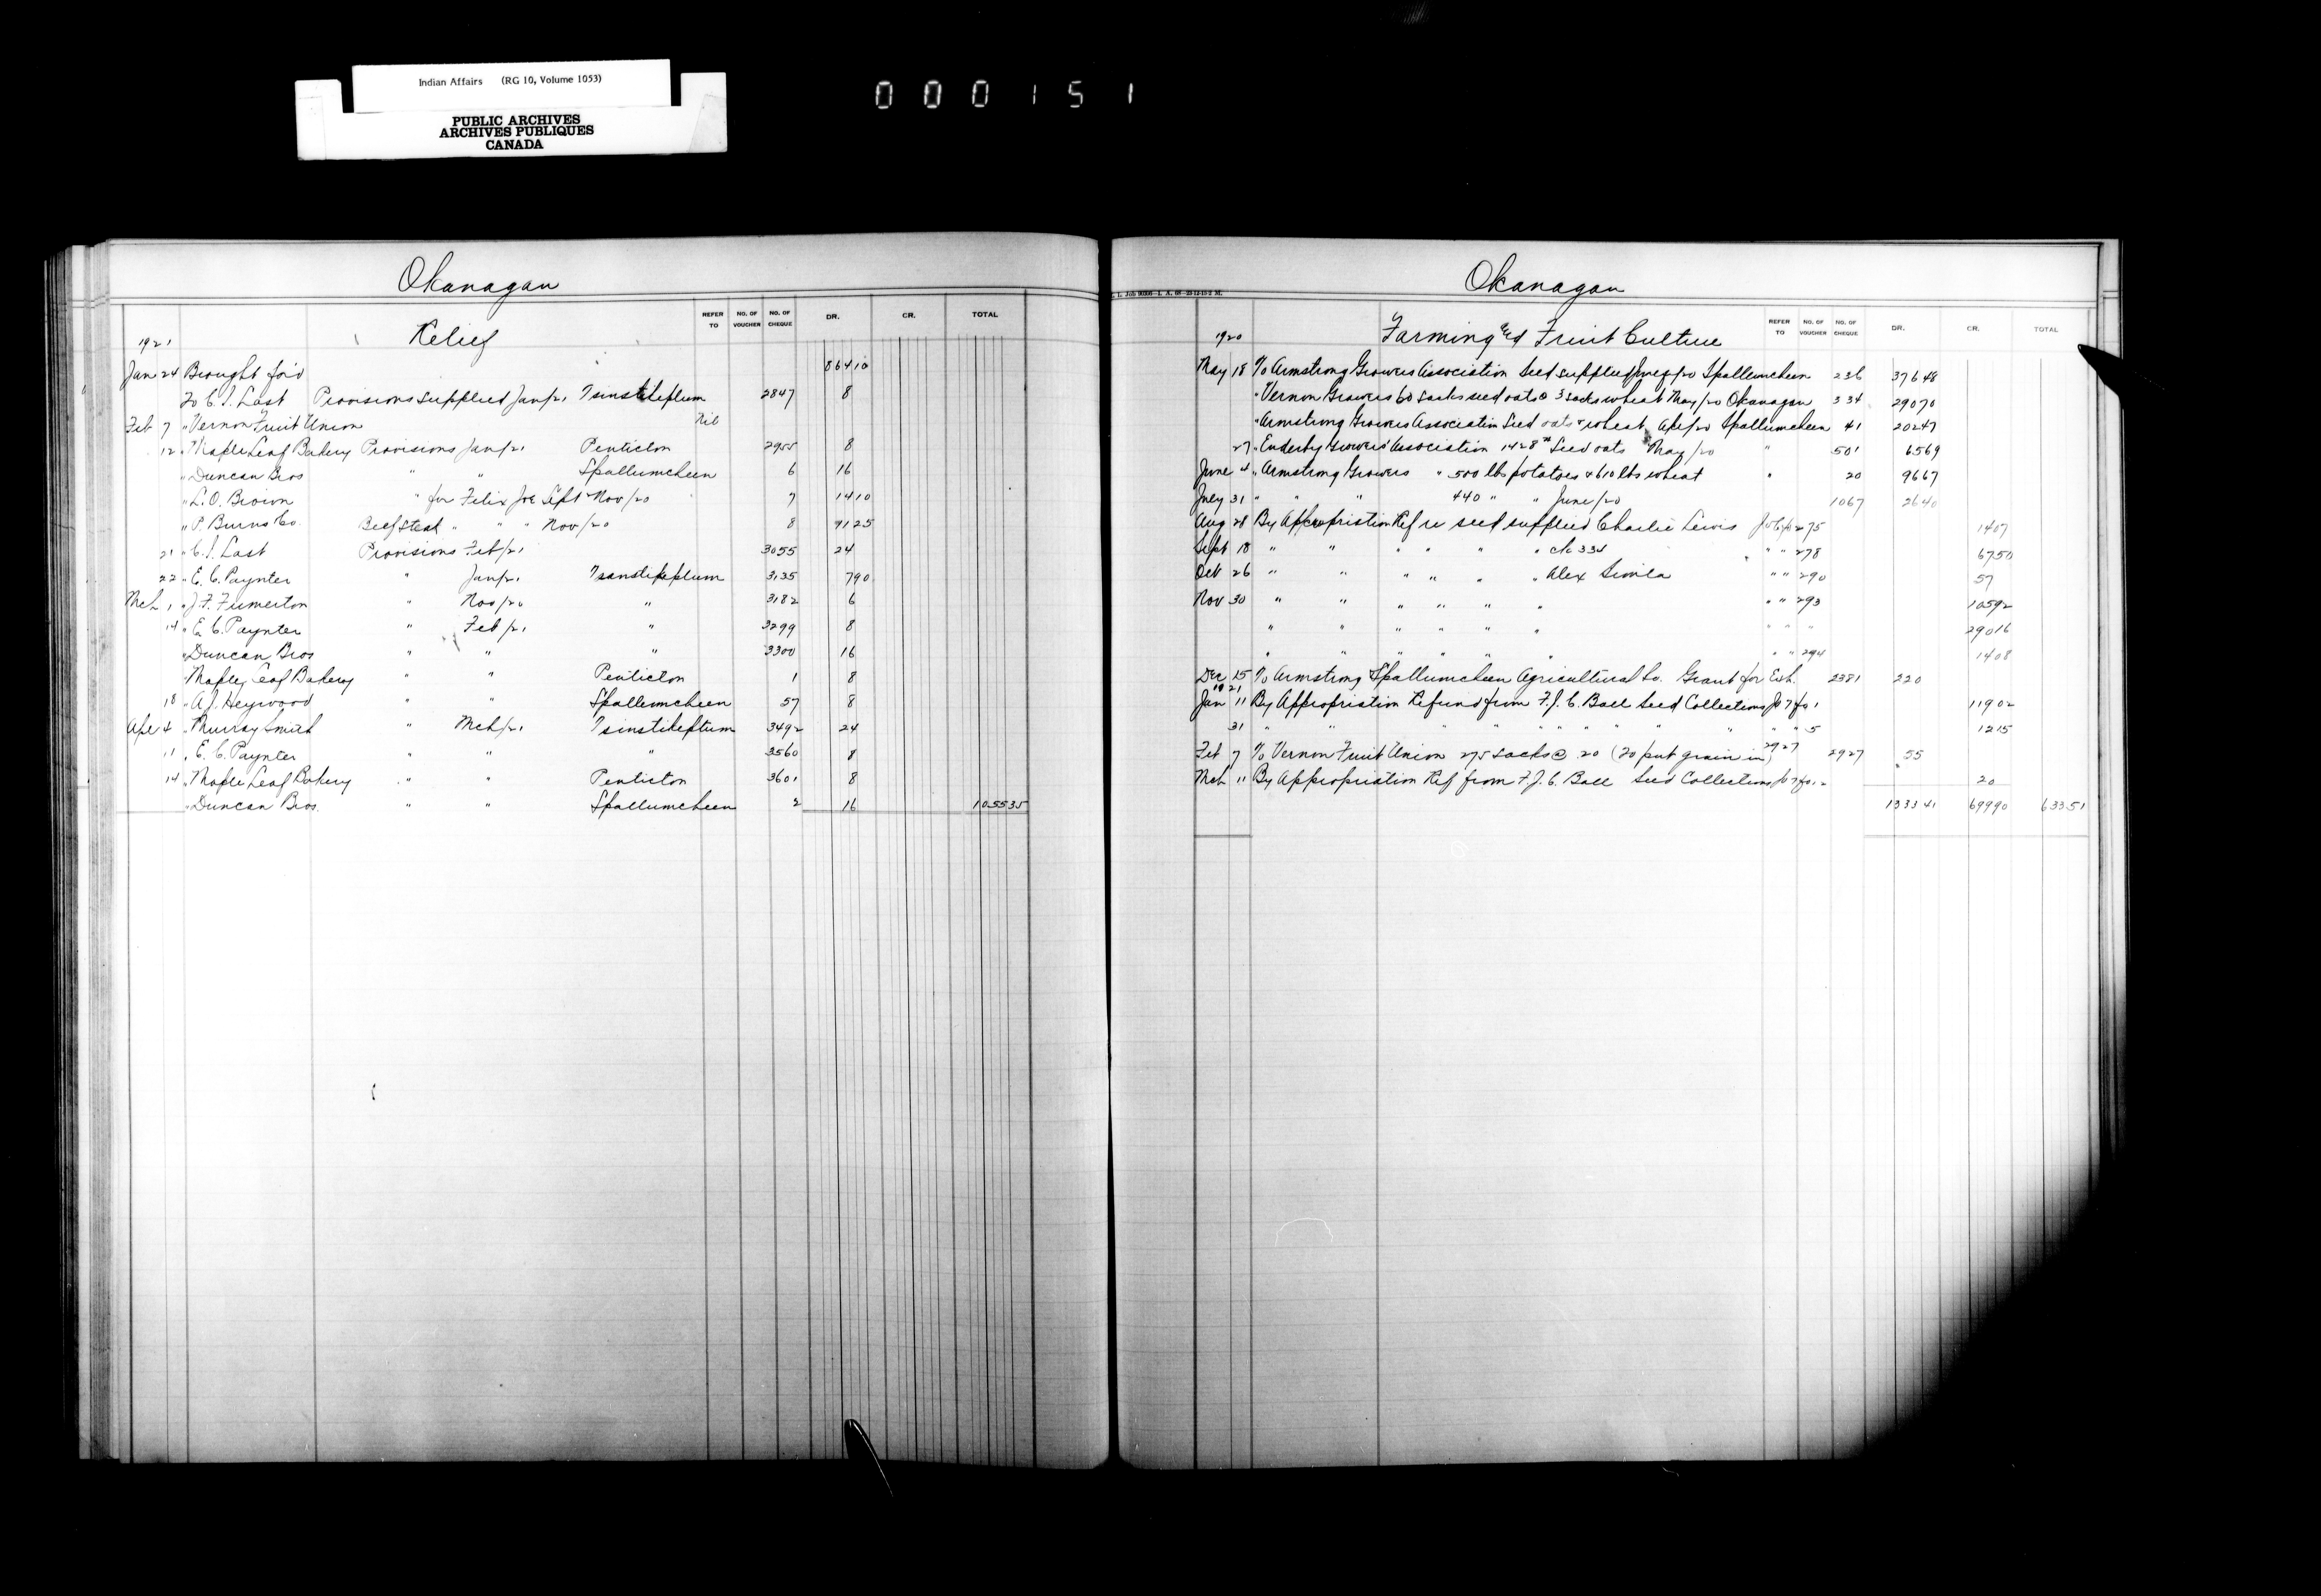 Indian Affairs (RG 10, Volume 1053)
PUBLIC ARCHIVES
ARCHIVES PUBLIQUES
CANADA
000151
Okanagan
REFER TO NO. OF VOUCHER NO. OF CHEQUE DR. CR. TOTAL
1921 Relief
Jan 24 Brought for'd 864 10
To C. I. Last Provisions supplied Jan/21 Tsinstikeptum 2847 8
Feb 7 " Vernon Fruit Union Nil
12 " Maple Leaf Bakery Provisions Jan/21 Penticton 2955 8
" Duncan Bros " " Spallumcheen 6 16
" L. O. Brown " for Felix Joe Sept Nov/20 " 7 14 10
" P. Burns Co. Beefsteak " " " Nov/20 8 91 25
21 " C. I. Last Provisions Feb/21 3055 24
22 " E. C. Paynter " Jan/21 Tsinstikeptum 3135 7 90
Mch 1 " J. F. Fumerton " Nov/20 " 3182 6
14 " E. C. Paynter " Feb/21 " 3299 8
" Duncan Bros " " " 3300 16
Maple Leaf Bakery " " Penticton 1 8
18 " A. J. Heywood " " Spallumcheen 57 8
Apl 4 " Murray Smith " Mch/21 Tsinstikeptum 3492 24
11 " E. C. Paynter " " " 3560 8
14 " Maple Leaf Bakery " " Penticton 3601 8
" Duncan Bros. " " Spallumcheen 2 16 1055 35
Okanagan
REFER TO NO. OF VOUCHER NO. OF CHEQUE DR. CR. TOTAL
1920 Farming and Fruit Culture
May 18 To Armstrong Growers Association Seed supplied /20 Spallumcheen 236 376 48
" Vernon Growers 60 sacks seed oats & 3 sacks wheat May/20 Okanagan 334 290 70
" Armstrong Growers Association Seed oats & wheat Apl/20 Spallumcheen 41 202 47
27 " Enderby Growers' Association 1428 # Seed oats May/20 " 501 65 69
June 4 " Armstrong Growers " 500 lbs potatoes & 610 lbs wheat " 20 96 67
July 31 " " " 440 " " June/20 1067 26 40
Aug 28 By Appropriation Ref re seed supplied Charlie Lewis Jo 6 fo 275 14 07
Sept 18 " " " " " " c/o 334 " " 278 67 50
Oct 26 " " " " " " Alex Simla " " 290 57
Nov 30 " " " " " " " " 293 105 92
" " " " " " " " " 290 16
" " " " " " " " 294 14 08
Dec 15 To Armstrong Spallumcheen Agricultural So. Grant for Exh. 2381 220
1921
Jan 11 By Appropriation Refund from F. J. C. Ball Seed Collections Jo 7 fo 1 119 02
31 " " " " " " " " " " 5 12 15
Feb 7 To Vernon Fruit Union 275 sacks @ 20 (To put grain in) 2927 2927 55
Mch 11 By Appropriation Ref from F. J. C. Ball Seed Collections Jo 7 fo. 20
1333 41 699 90 633 51